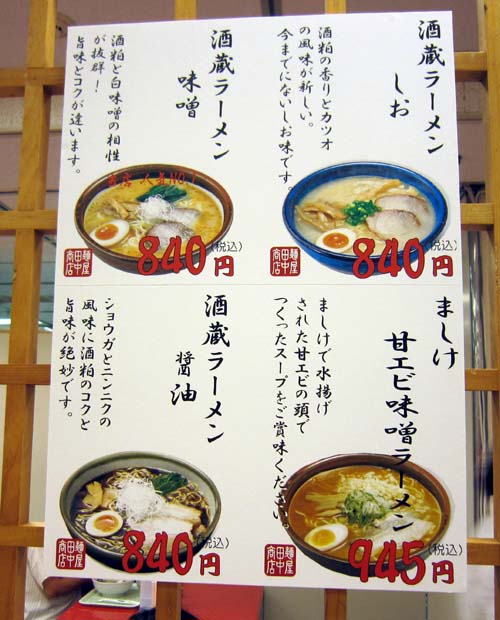 酒蔵ラーメン
しお
酒粕の香りとカツオ
の風味が新しい。
今までにないしお味です。
麺屋
田中
商店
840円
(税込)
酒蔵ラーメン
味噌
酒粕と白味噌の相性
が抜群！
旨味とコクが違います。
当店 人気NO.1
麺屋
田中
商店
840円
(税込)
ましけ
甘エビ味噌ラーメン
ましけで水揚げ
された甘エビの頭で
つくったスープをご賞味ください。
麺屋
田中
商店
945円
(税込)
酒蔵ラーメン
醤油
ショウガとニンニクの
風味に酒粕のコクと
旨味が絶妙です。
麺屋
田中
商店
840円
(税込)